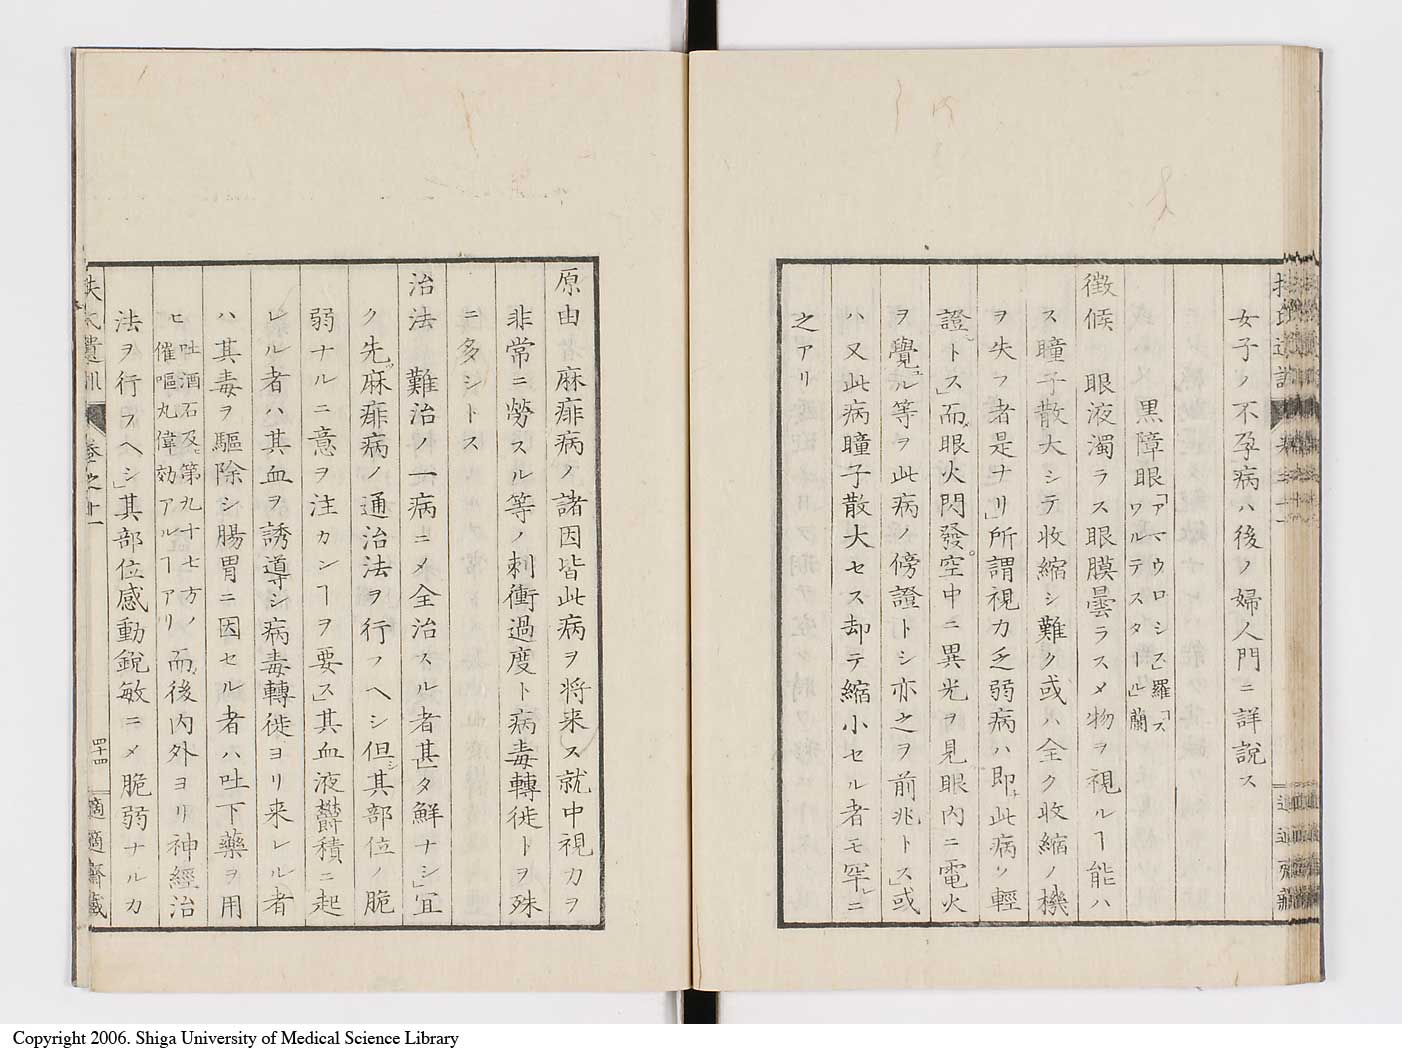 女子ノ不孕病ハ後ノ婦人門ニ詳説ス
黒障眼「アマウロシス」羅「ス
ワルテスタール」蘭
徴候 眼液濁ラス眼膜曇ラスメ物ヲ視ルヿ能ハ
ス瞳子散大シテ收縮シ難ク或ハ全ク收縮ノ機
ヲ失フ者是ナリ」所謂視力乏弱病ハ即チ此病ノ輕
證トス」而眼火閃發空中ニ異光ヲ見眼内ニ電火
ヲ覺ユル等ヲ此病ノ傍證トシ亦之ヲ前兆トス」或
ハ又此病瞳子散大セス却テ縮小セル者モ罕レニ
之アリ
原由 麻痱病ノ諸因皆此病ヲ将来ス就中視力ヲ
非常ニ勞スル等ノ刺衝過度ト病毒轉徙トヲ殊
ニ多シトス
治法 難治ノ一病ニメ全治スル者甚タ鮮ナシ」宜
ク先ツ麻痱病ノ通治法ヲ行フヘシ但シ其部位ノ脆
弱ナルニ意ヲ注カンヿヲ要ス」其血液鬱積ニ起
レル者ハ其血ヲ誘導シ病毒轉徙ヨリ来レル者
ハ其毒ヲ驅除シ腸胃ニ因セル者ハ吐下藥ヲ用
ヒ吐酒石及第九十七方ノ
催嘔丸偉効アルヿアリ而後内外ヨリ神經治
法ヲ行フヘシ」其部位感動鋭敏ニメ脆弱ナルカ
扶氏遺訓 巻之十一 四十四 適適齋藏
Copyright 2006. Shiga University of Medical Science Library